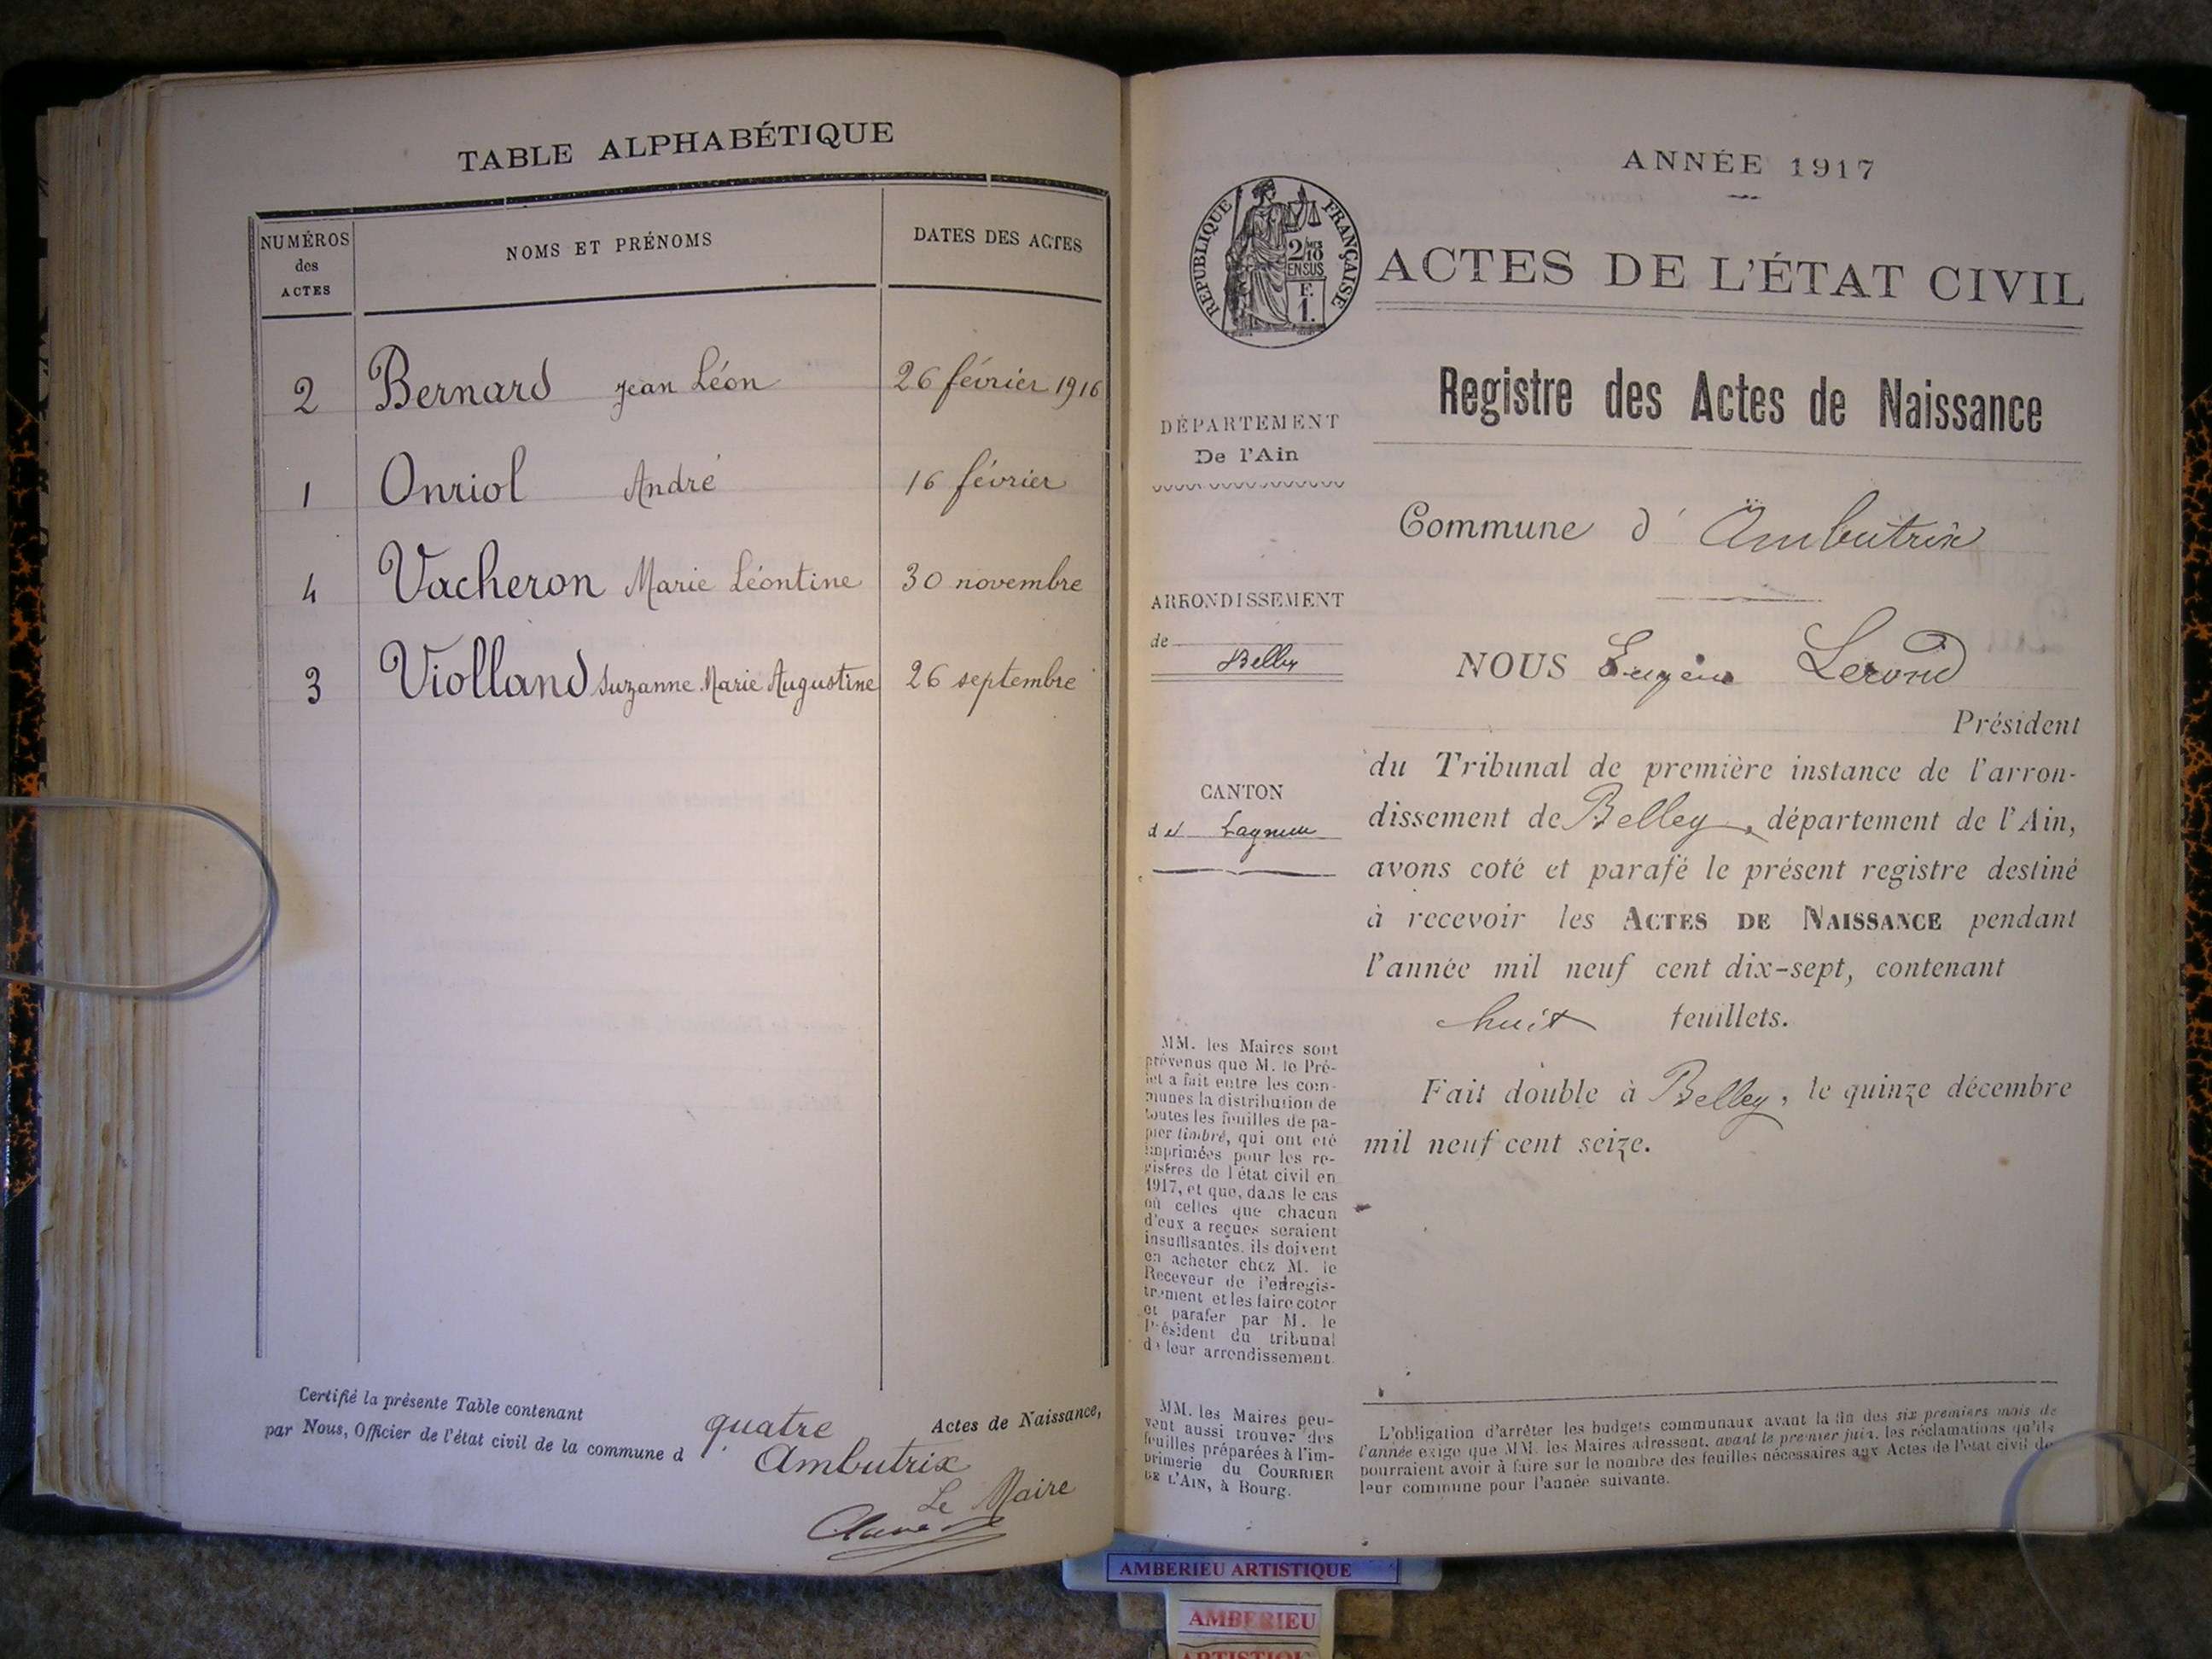 TABLE ALPHABÉTIQUE
NUMÉROS
des
ACTES
NOMS ET PRÉNOMS
DATES DES ACTES
2 Bernard Jean Léon 26 février 1916
1 Onriol André 16 février
4 Vacheron Marie Léontine 30 novembre
3 Violland Suzanne Marie Augustine 26 septembre
Certifié la présente Table contenant quatre Actes de Naissance,
par Nous, Officier de l'état civil de la commune d'Ambutrix
Le Maire
ANNÉE 1917
RÉPUBLIQUE FRANÇAISE
2/10
EN SUS
F.
1.
ACTES DE L'ÉTAT CIVIL
Registre des Actes de Naissance
DÉPARTEMENT
De l'Ain
Commune d'Ambutrix
ARRONDISSEMENT
de Belley
NOUS Eugène Lerond
Président
du Tribunal de première instance de l'arron-
dissement de Belley, département de l'Ain,
avons coté et parafé le présent registre destiné
à recevoir les ACTES DE NAISSANCE pendant
l'année mil neuf cent dix-sept, contenant
huit feuillets.
Fait double à Belley, le quinze décembre
mil neuf cent seize.
CANTON
de Lagnieu
MM. les Maires sont
prévenus que M. le Pré-
fet a fait entre les com-
munes la distribution de
toutes les feuilles de pa-
pier timbré, qui ont été
imprimées pour les re-
gistres de l'état civil en
1917, et que, dans le cas
où celles que chacun
d'eux a reçues seraient
insuffisantes, ils doivent
en acheter chez M. le
Receveur de l'enregis-
trement et les faire coter
et parafer par M. le
Président du tribunal
de leur arrondissement.
MM. les Maires peu-
vent aussi trouver des
feuilles préparées à l'im-
primerie du COURRIER
DE L'AIN, à Bourg.
L'obligation d'arrêter les budgets communaux avant la fin des six premiers mois de
l'année exige que MM. les Maires adressent, avant le premier juin, les réclamations qu'ils
pourraient avoir à faire sur le nombre des feuilles nécessaires aux Actes de l'état civil de
leur commune pour l'année suivante.
AMBERIEU ARTISTIQUE
AMBERIEU
ARTISTIQU